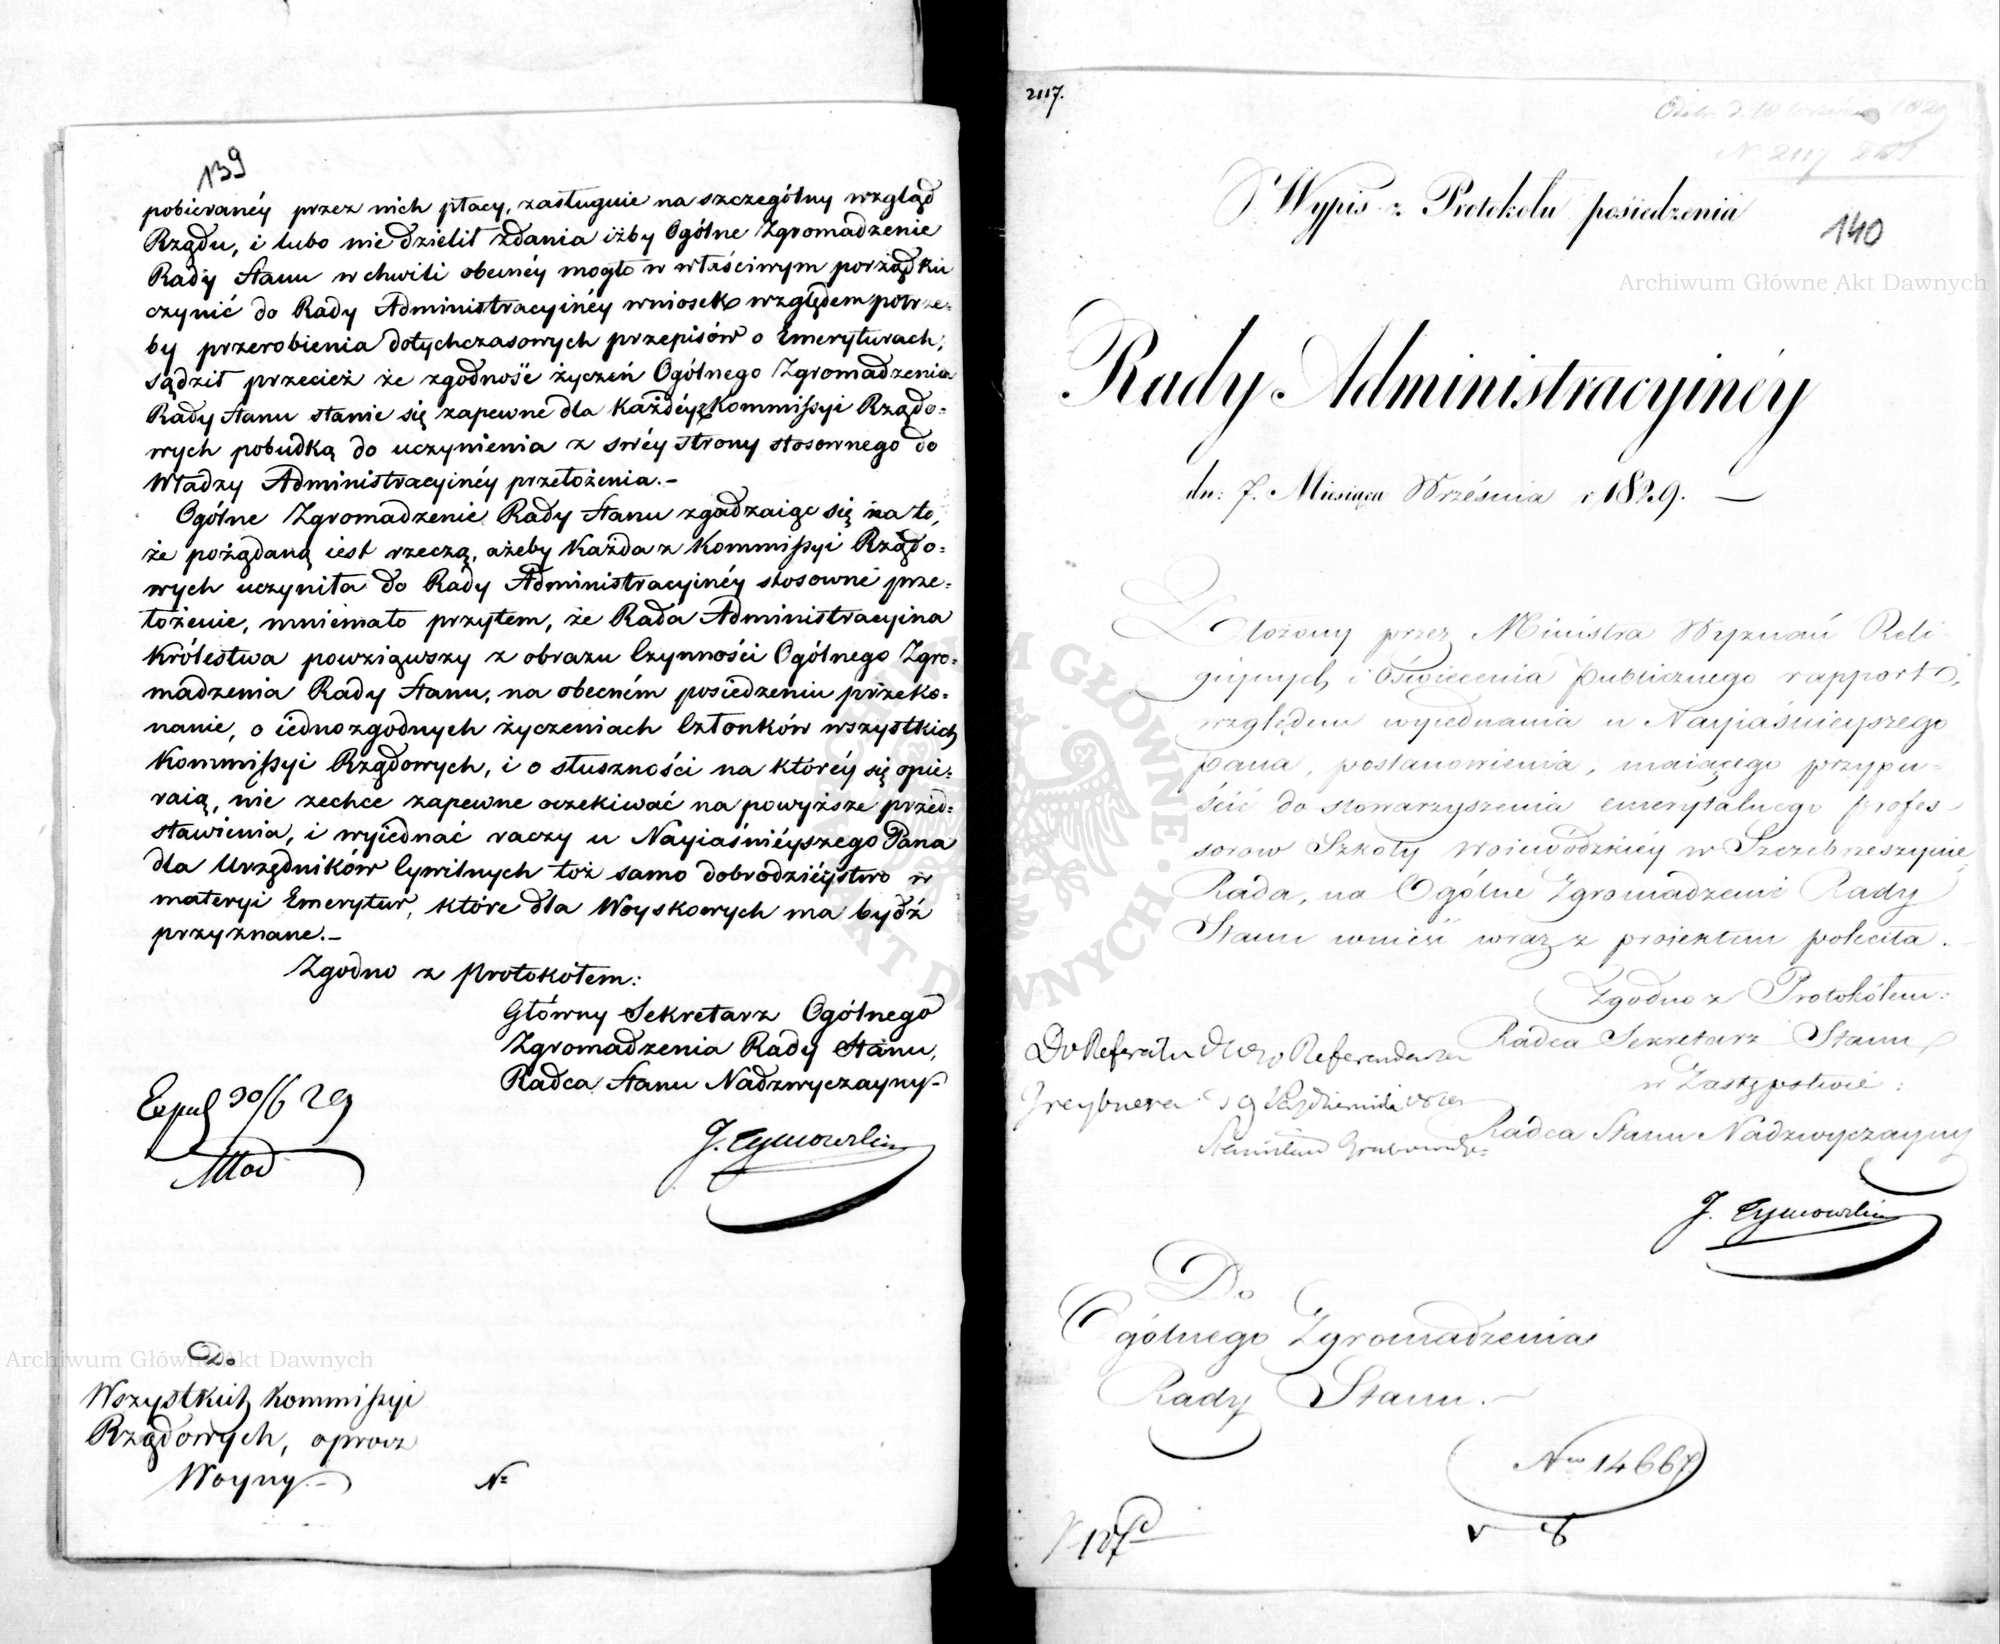 139
pobieranéy przez nich płacy, zasługuie na szczególny wzgląd
Rządu, i lubo nie dzielił zdania iżby Ogólne Zgromadzenie
Rady Stanu w chwili obecnéy mogło w właściwym porządku
czynić do Rady Administracyinéy wniosek względem potrze-
by przerobienia dotychczasowych przepisów o Emeryturach;
sądził przecież że zgodność życzeń Ogólnego Zgromadzenia
Rady Stanu stanie się zapewne dla każdéy z Kommissyi Rządo-
wych pobudką do uczynienia z swéy strony stosownego do
Władzy Administracyinéy przełożenia.-
Ogólne Zgromadzenie Rady Stanu zgadzaiąc się na to,
że pożądaną iest rzeczą, ażeby każda z Kommissyi Rządo-
wych uczyniła do Rady Administracyinéy stosowne prze-
łożenie, mniemało przytem, że Rada Administracyina
Królestwa powziąwszy z obrazu Czynności Ogólnego Zgro-
madzenia Rady Stanu, na obecném posiedzeniu przeko-
nanie, o iednozgodnych życzeniach Członków wszystkich
Kommissyi Rządowych, i o słuszności na któréy się opie-
raią, nie zechce zapewne oczekiwać na powyższe przed-
stawienia, i wyiednać raczy u Nayiaśniéyszego Pana
dla Urzędników Cywilnych toż samo dobrodzieystwo w
materyi Emerytur, które dla Woyskowych ma bydź
przyznane.-
Zgodno z Protokołem:
Główny Sekretarz Ogólnego
Zgromadzenia Rady Stanu,
Radca Stanu Nadzwyczayny-
J. Tymowski
Exped 30/6 29
Do
Wszystkich Kommissyi
Rządowych, oprocz
Woyny.-
N=
2117.
N. 2117
Wypis z Protokołu posiedzenia
140
Rady Administracyinéy
dn: 7. Miesiąca Września r. 1829. —
Złożony przez Ministra Wyznań Reli
giynych i Oświecenia Publicznego rapport,
względem wyiednania u Nayiaśnieyszego
Pana, postanowienia, maiącego przypu-
ścić do stowarzyszenia emerytalnego profes-
sorow Szkoły Woiewódzkiéy w Szczebrzeszynie,
Rada, na Ogólne Zgromadzenie Rady
Stanu wnieść wraz z proiektem poleciła.-
Zgodno z Protokółem:
Radca Sekretarz Stanu
w Zastępstwie:
Radca Stanu Nadzwyczayny
J. Tymowski
Do Referatu JWgo Referendarza
Stanisław Grabowski
Do
Ogólnego Zgromadzenia
Rady Stanu.-
Nro 14667
Archiwum Główne Akt Dawnych
Archiwum Główne Akt Dawnych